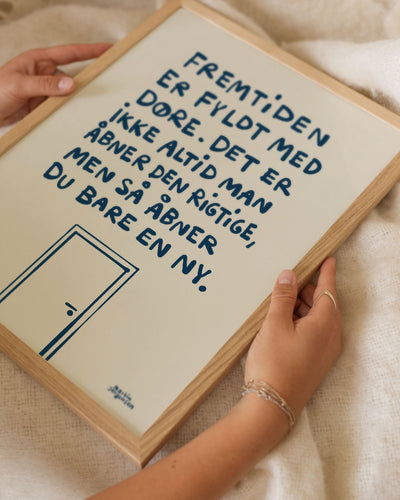 FREMTiDEN
ER FYLDT MED
DØRE. DET ER
iKKE ALTiD MAN
ÅBNER DEN RiGTIGE,
MEN SÅ ÅBNER
DU BARE EN NY.